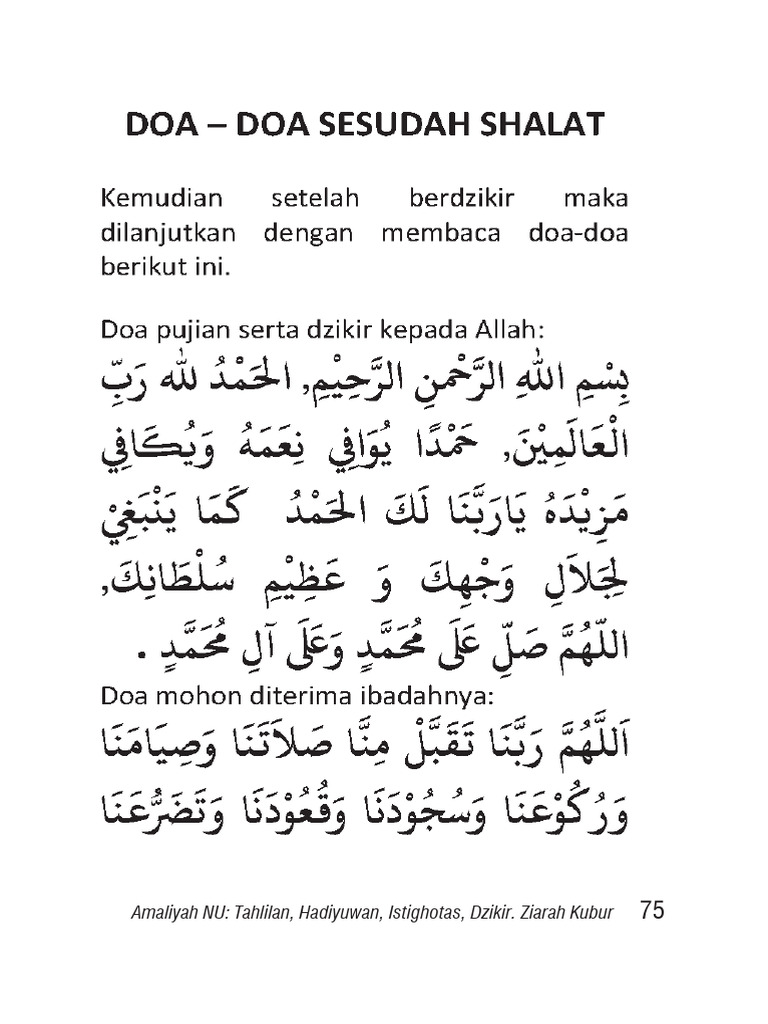 DOA – DOA SESUDAH SHALAT
Kemudian setelah berdzikir maka
dilanjutkan dengan membaca doa-doa
berikut ini.
Doa pujian serta dzikir kepada Allah:
بِسْمِ اللهِ الرَّحْمنِ الرَّحِيْمِ, الحَمْدُ لله رَبِّ
الْعَالَمِيْنَ, حَمْدًا يُوَافِي نِعَمَهُ وَيُكَافِي
مَزِيْدَهُ يَارَبَّنَا لَكَ الحَمْدُ كَمَا يَنْبَغِيْ
لِجَلاَلِ وَجْهِكَ وَ عَظِيْمِ سُلْطَانِكَ,
اللّهُمَّ صَلِّ عَلَى مُحَمَّدٍ وَعَلَى آلِ مُحَمَّدٍ .
Doa mohon diterima ibadahnya:
اَللَّهُمَّ رَبَّنَا تَقَبَّلْ مِنَّا صَلاَتَنَا وَصِيَامَنَا
وَرُكُوْعَنَا وَسُجُوْدَنَا وَقُعُوْدَنَا وَتَضَرُّعَنَا
Amaliyah NU: Tahlilan, Hadiyuwan, Istighotas, Dzikir. Ziarah Kubur 75